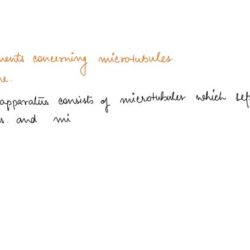 ments concerning microtubules
ne.
apparatus consists of microtubules which sep
s. and mi